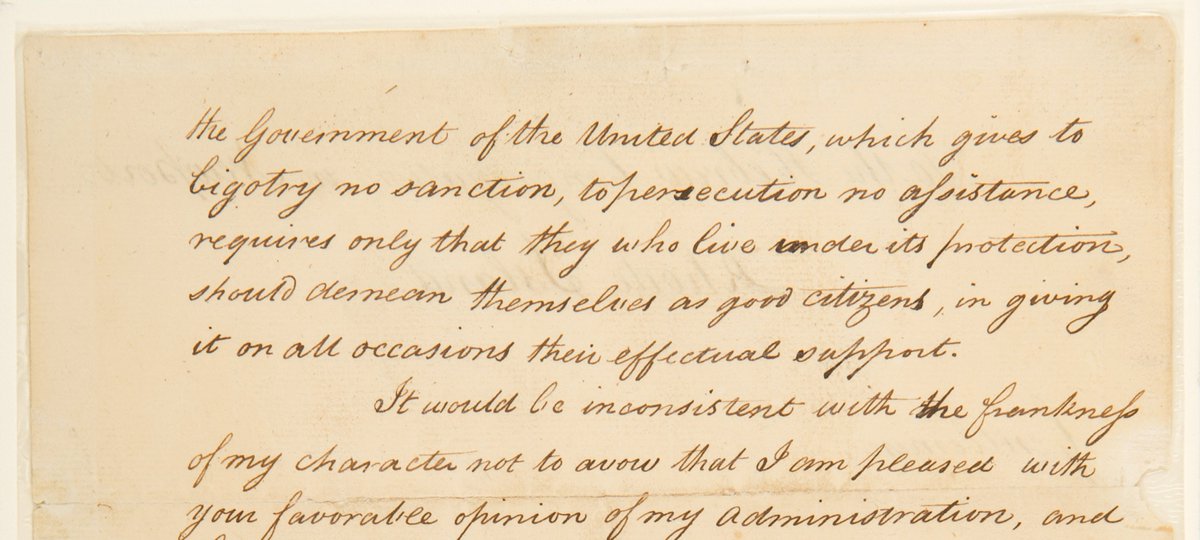 the Government of the United States, which gives to
bigotry no sanction, to persecution no assistance,
requires only that they who live under its protection,
should demean themselves as good citizens, in giving
it on all occasions their effectual support.
It would be inconsistent with the frankness
of my character not to avow that I am pleased with
your favorable opinion of my administration, and